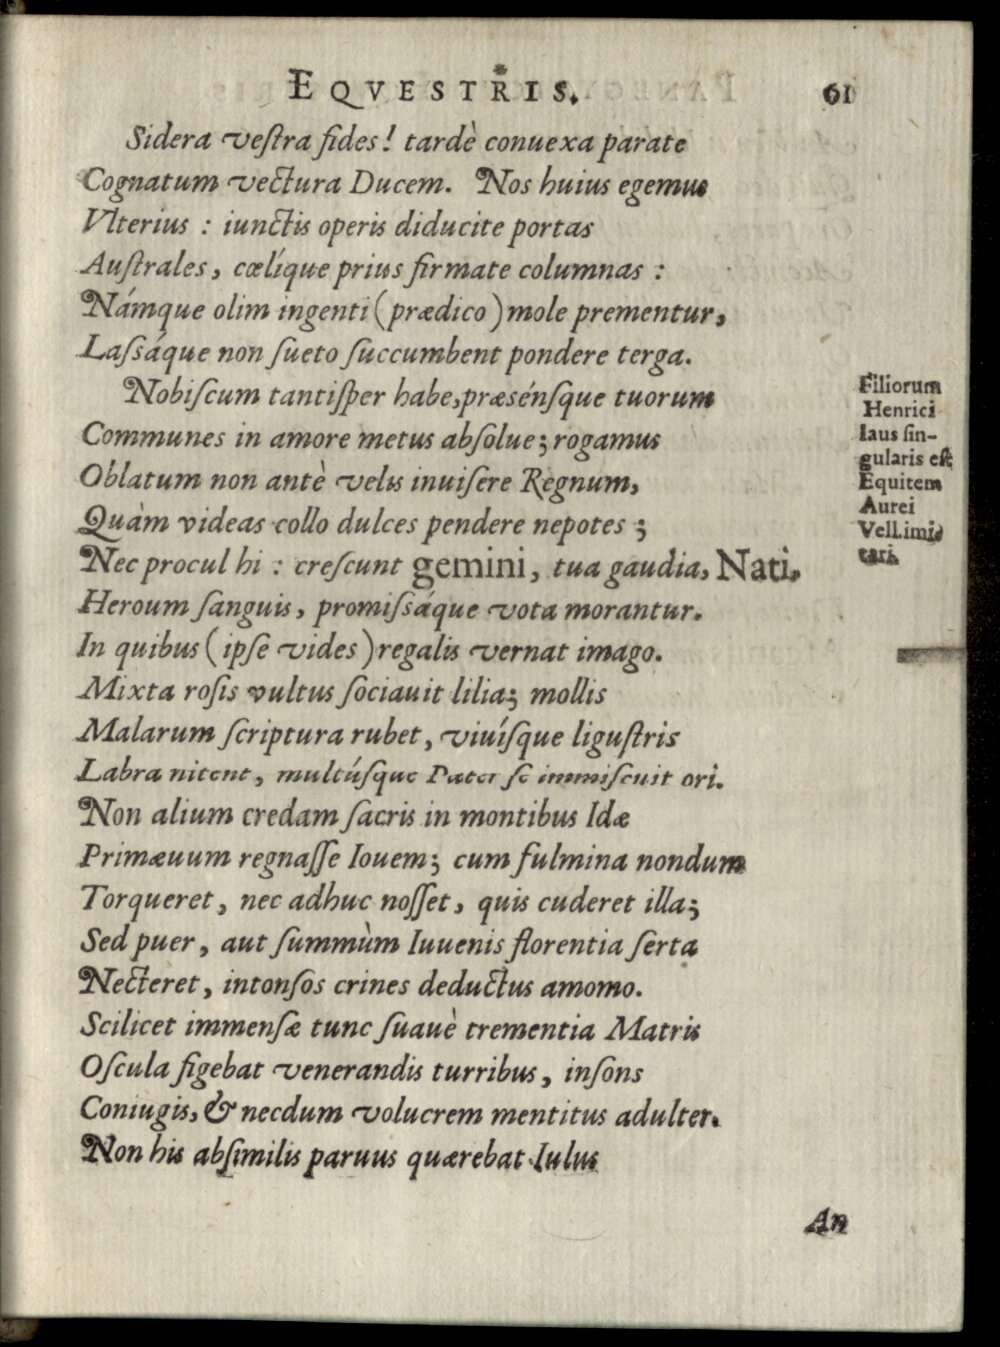 EQVESTRIS. 61
Sidera veſtra fides! tardè conuexa parate
Cognatum vectura Ducem. Nos huius egemus
Vlterius : iunctis operis diducite portas
Auſtrales, cœlíque prius firmate columnas :
Námque olim ingenti (prædico) mole prementur,
Laſsáque non ſueto ſuccumbent pondere terga.
Nobiſcum tantiſper habe, præsénſque tuorum
Communes in amore metus abſolue; rogamus
Oblatum non antè velis inuiſere Regnum,
Quàm videas collo dulces pendere nepotes ;
Nec procul hi : creſcunt gemini, tua gaudia, Nati,
Heroum ſanguis, promiſsáque vota morantur.
In quibus (ipſe vides) regalis vernat imago.
Mixta roſis vultus ſociauit lilia; mollis
Malarum ſcriptura rubet, viuíſque liguſtris
Labra nitent, multúſque Pater ſe immiſcuit ori.
Non alium credam ſacris in montibus Idæ
Primæuum regnaſſe Iouem; cum fulmina nondum
Torqueret, nec adhuc noſſet, quis cuderet illa;
Sed puer, aut ſummùm Iuuenis florentia ſerta
Necteret, intonſos crines deductus amomo.
Scilicet immenſæ tunc ſuauè trementia Matris
Oſcula figebat venerandis turribus, inſons
Coniugis, & necdum volucrem mentitus adulter.
Non his abſimilis paruus quærebat Iulus
An
Filiorum
Henrici
laus ſin-
gularis eſt
Equitem
Aurei
Vell. imi-
tari.